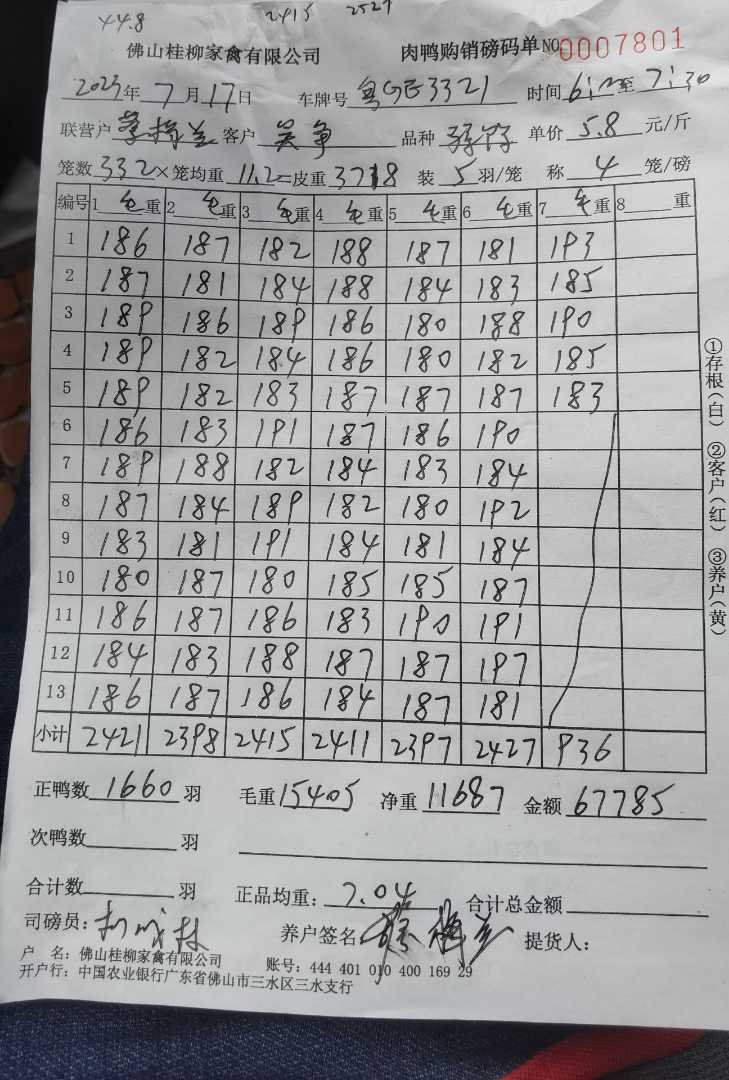 44.8 2415 2527
佛山桂柳家禽有限公司 肉鸭购销磅码单 NO 0007801
2023年 7月 17日 车牌号 粤GE3321 时间 6: 至 7:30
联营户 客户 吴争 品种 单价 5.8 元/斤
笼数 332 × 笼均重 11.2 = 皮重 3718 装 5 羽/笼 称 4 笼/磅
编号 1 毛重 2 毛重 3 毛重 4 毛重 5 毛重 6 毛重 7 毛重 8 重
1 186 187 182 188 187 181 193
2 187 181 184 188 184 183 185
3 189 186 189 186 180 188 190
4 189 182 184 186 180 182 185
5 189 182 183 187 187 187 183
6 186 183 191 187 186 190
7 189 188 182 184 183 184
8 187 184 189 182 180 192
9 183 181 191 184 181 184
10 180 187 180 185 185 187
11 186 187 186 183 190 191
12 184 183 188 187 187 197
13 186 187 186 184 187 181
小计 2421 2398 2415 2411 2397 2427 936
正鸭数 1660 羽 毛重 15405 净重 11687 金额 67785
次鸭数 羽
合计数 羽 正品均重: 7.04 合计总金额
司磅员: 养户签名 提货人:
户 名: 佛山桂柳家禽有限公司 账号: 444 401 010 400 169 29
开户行: 中国农业银行广东省佛山市三水区三水支行
①存根(白) ②客户(红) ③养户(黄)